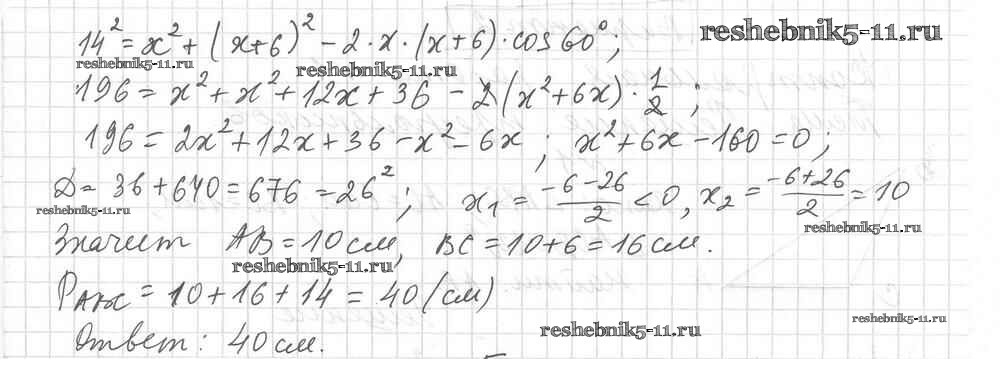 14² = x² + (x+6)² - 2·x·(x+6)·cos 60°;
reshebnik5-11.ru
reshebnik5-11.ru
reshebnik5-11.ru
196 = x² + x² + 12x + 36 - 2(x² + 6x)·1/2;
196 = 2x² + 12x + 36 - x² - 6x; x² + 6x - 160 = 0;
D = 36 + 640 = 676 = 26²; x₁ = (-6-26)/2 < 0, x₂ = (-6+26)/2 = 10
reshebnik5-11.ru
reshebnik5-11.ru
Значит AB = 10 см, BC = 10 + 6 = 16 см.
reshebnik5-11.ru
P_ABC = 10 + 16 + 14 = 40 (см)
reshebnik5-11.ru
reshebnik5-11.ru
Ответ: 40 см.